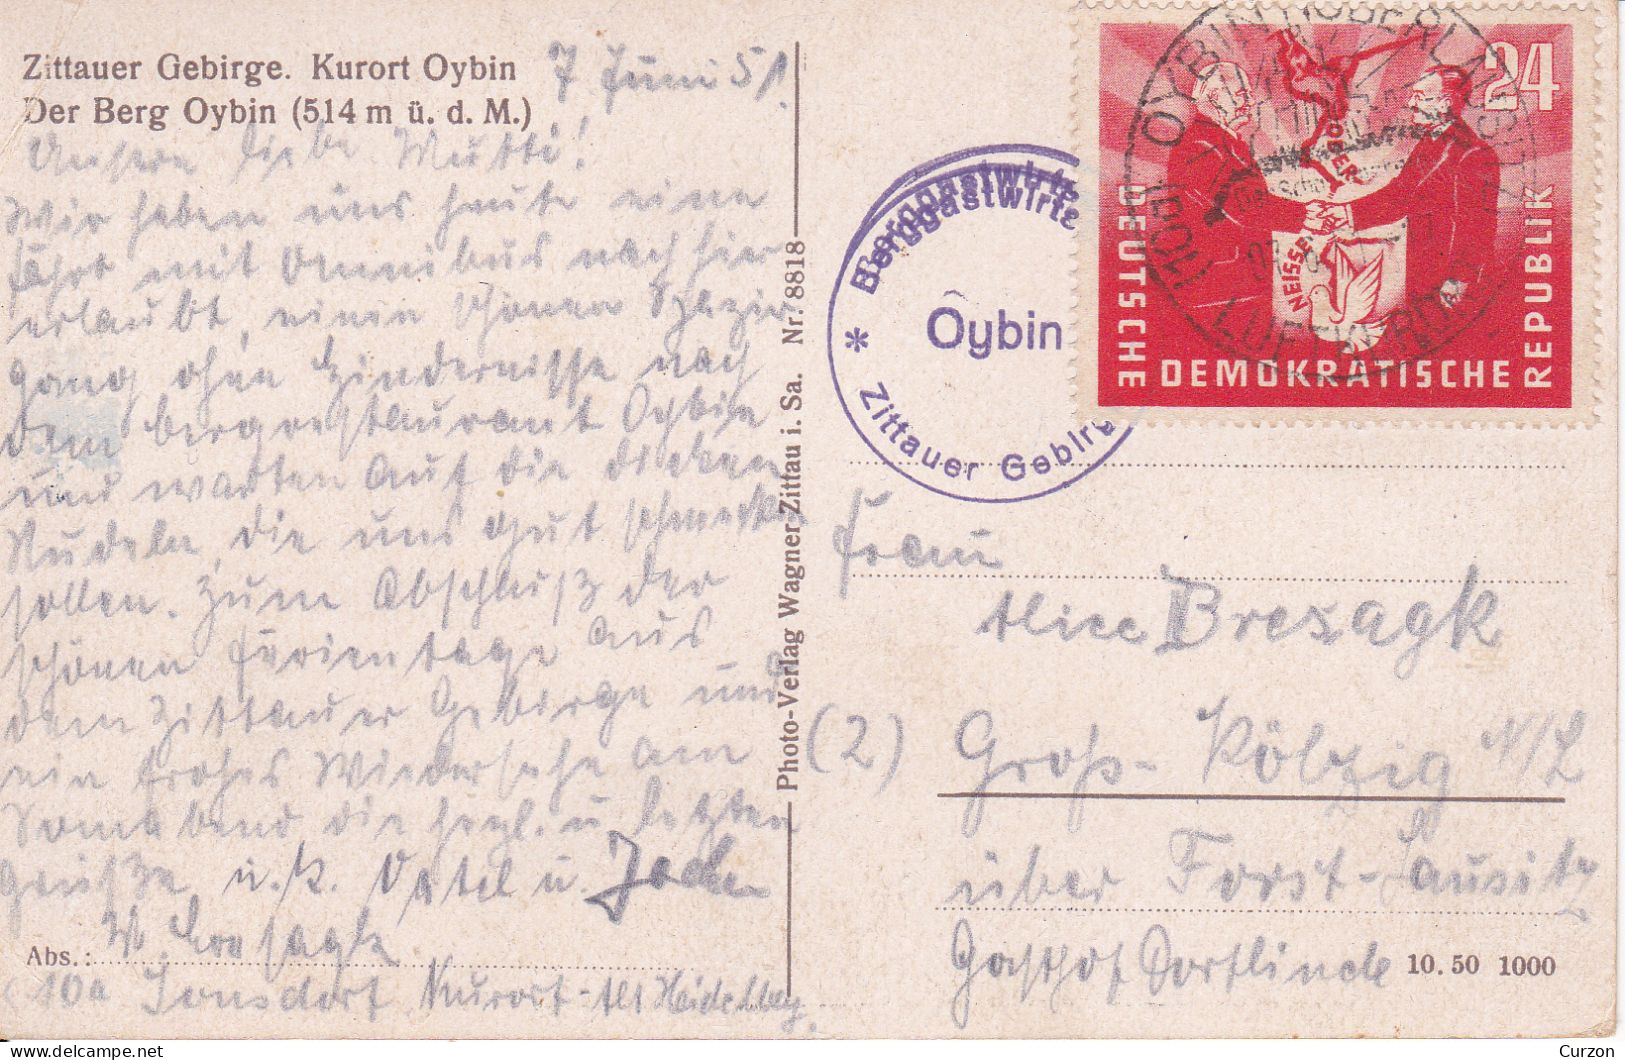 Zittauer Gebirge. Kurort Oybin
Der Berg Oybin (514 m ü. d. M.)
7 Juni 51.
Unsere liebe Mutti!
Wir haben uns heute eine
Fahrt mit Omnibus nach hier
erlaubt, einen schönen Spazier
gang ohne Hindernisse nach
dem Bergrestaurant Oybin
und warten auf die dicken
Nudeln, die uns gut schmecken
sollen. Zum Abschluß der
schönen Ferientage aus
dem Zittauer Gebirge und
ein frohes Wiedersehn am
Sonnabend die herzl. u. letzten
Grüße u. K. Vatel u. Jochen
Abs.:
10a Jonsdorf Kurort-Alt Heidelberg.
Photo-Verlag Wagner Zittau i. Sa. Nr. 8818
Berggastwirte
Berggastwirte
* Oybin
Zittauer Gebirge
24
ODER
NEISSE
DEUTSCHE DEMOKRATISCHE REPUBLIK
(10a) OYBIN
LUFTKURORT
Frau
Alice Bresagk
(2) Groß-Kölzig N/L
über Forst-Lausitz
Gasthof
10. 50 1000
Curzon
delcampe.net